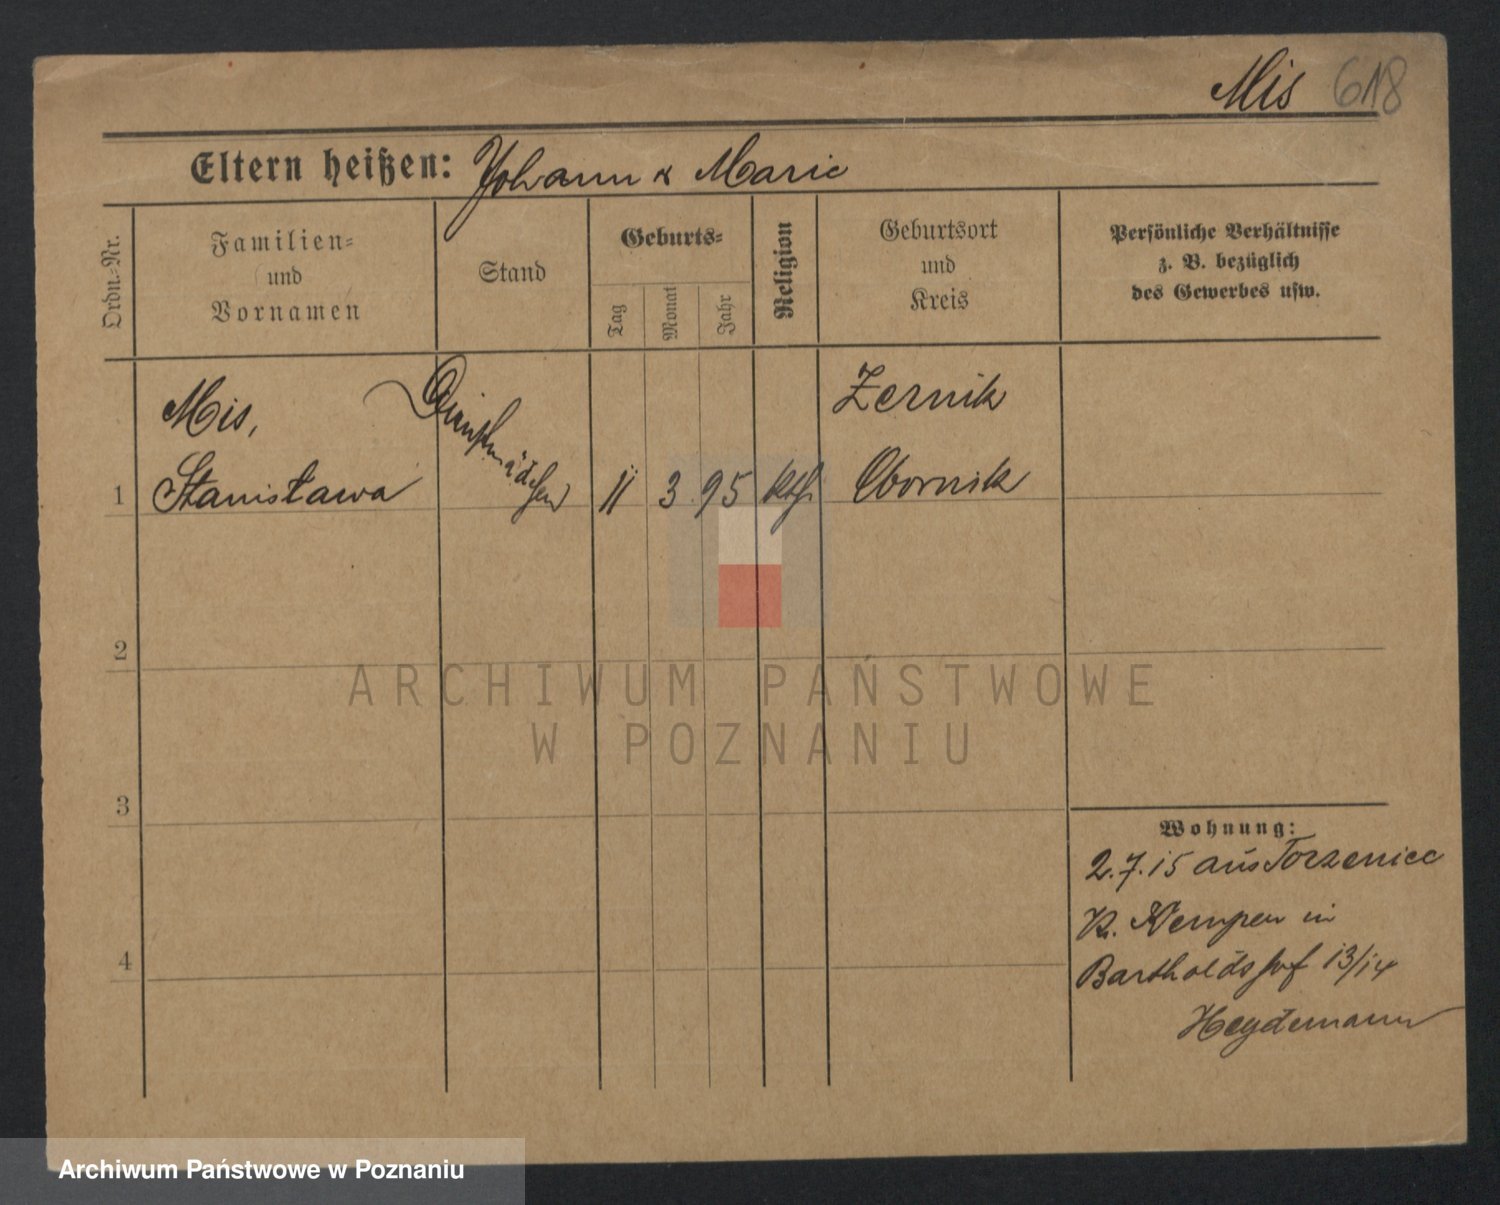 Mis 618
Eltern heißen: Johann & Marie
Ordn.-Nr.
Familien-
und
Vornamen
Stand
Geburts-
Tag
Monat
Jahr
Religion
Geburtsort
und
Kreis
Persönliche Verhältnisse
z. B. bezüglich
des Gewerbes usw.
Mis,
Dienstmädchen
Zernik
1 Stanisława 11 3 95 kth Obornik
2
ARCHIWUM PAŃSTWOWE
W POZNANIU
3
Wohnung:
2.7.15 aus Torzeniec
Kr. Kempen in
Bartholdshof 13/14
4
Heydemann
Archiwum Państwowe w Poznaniu